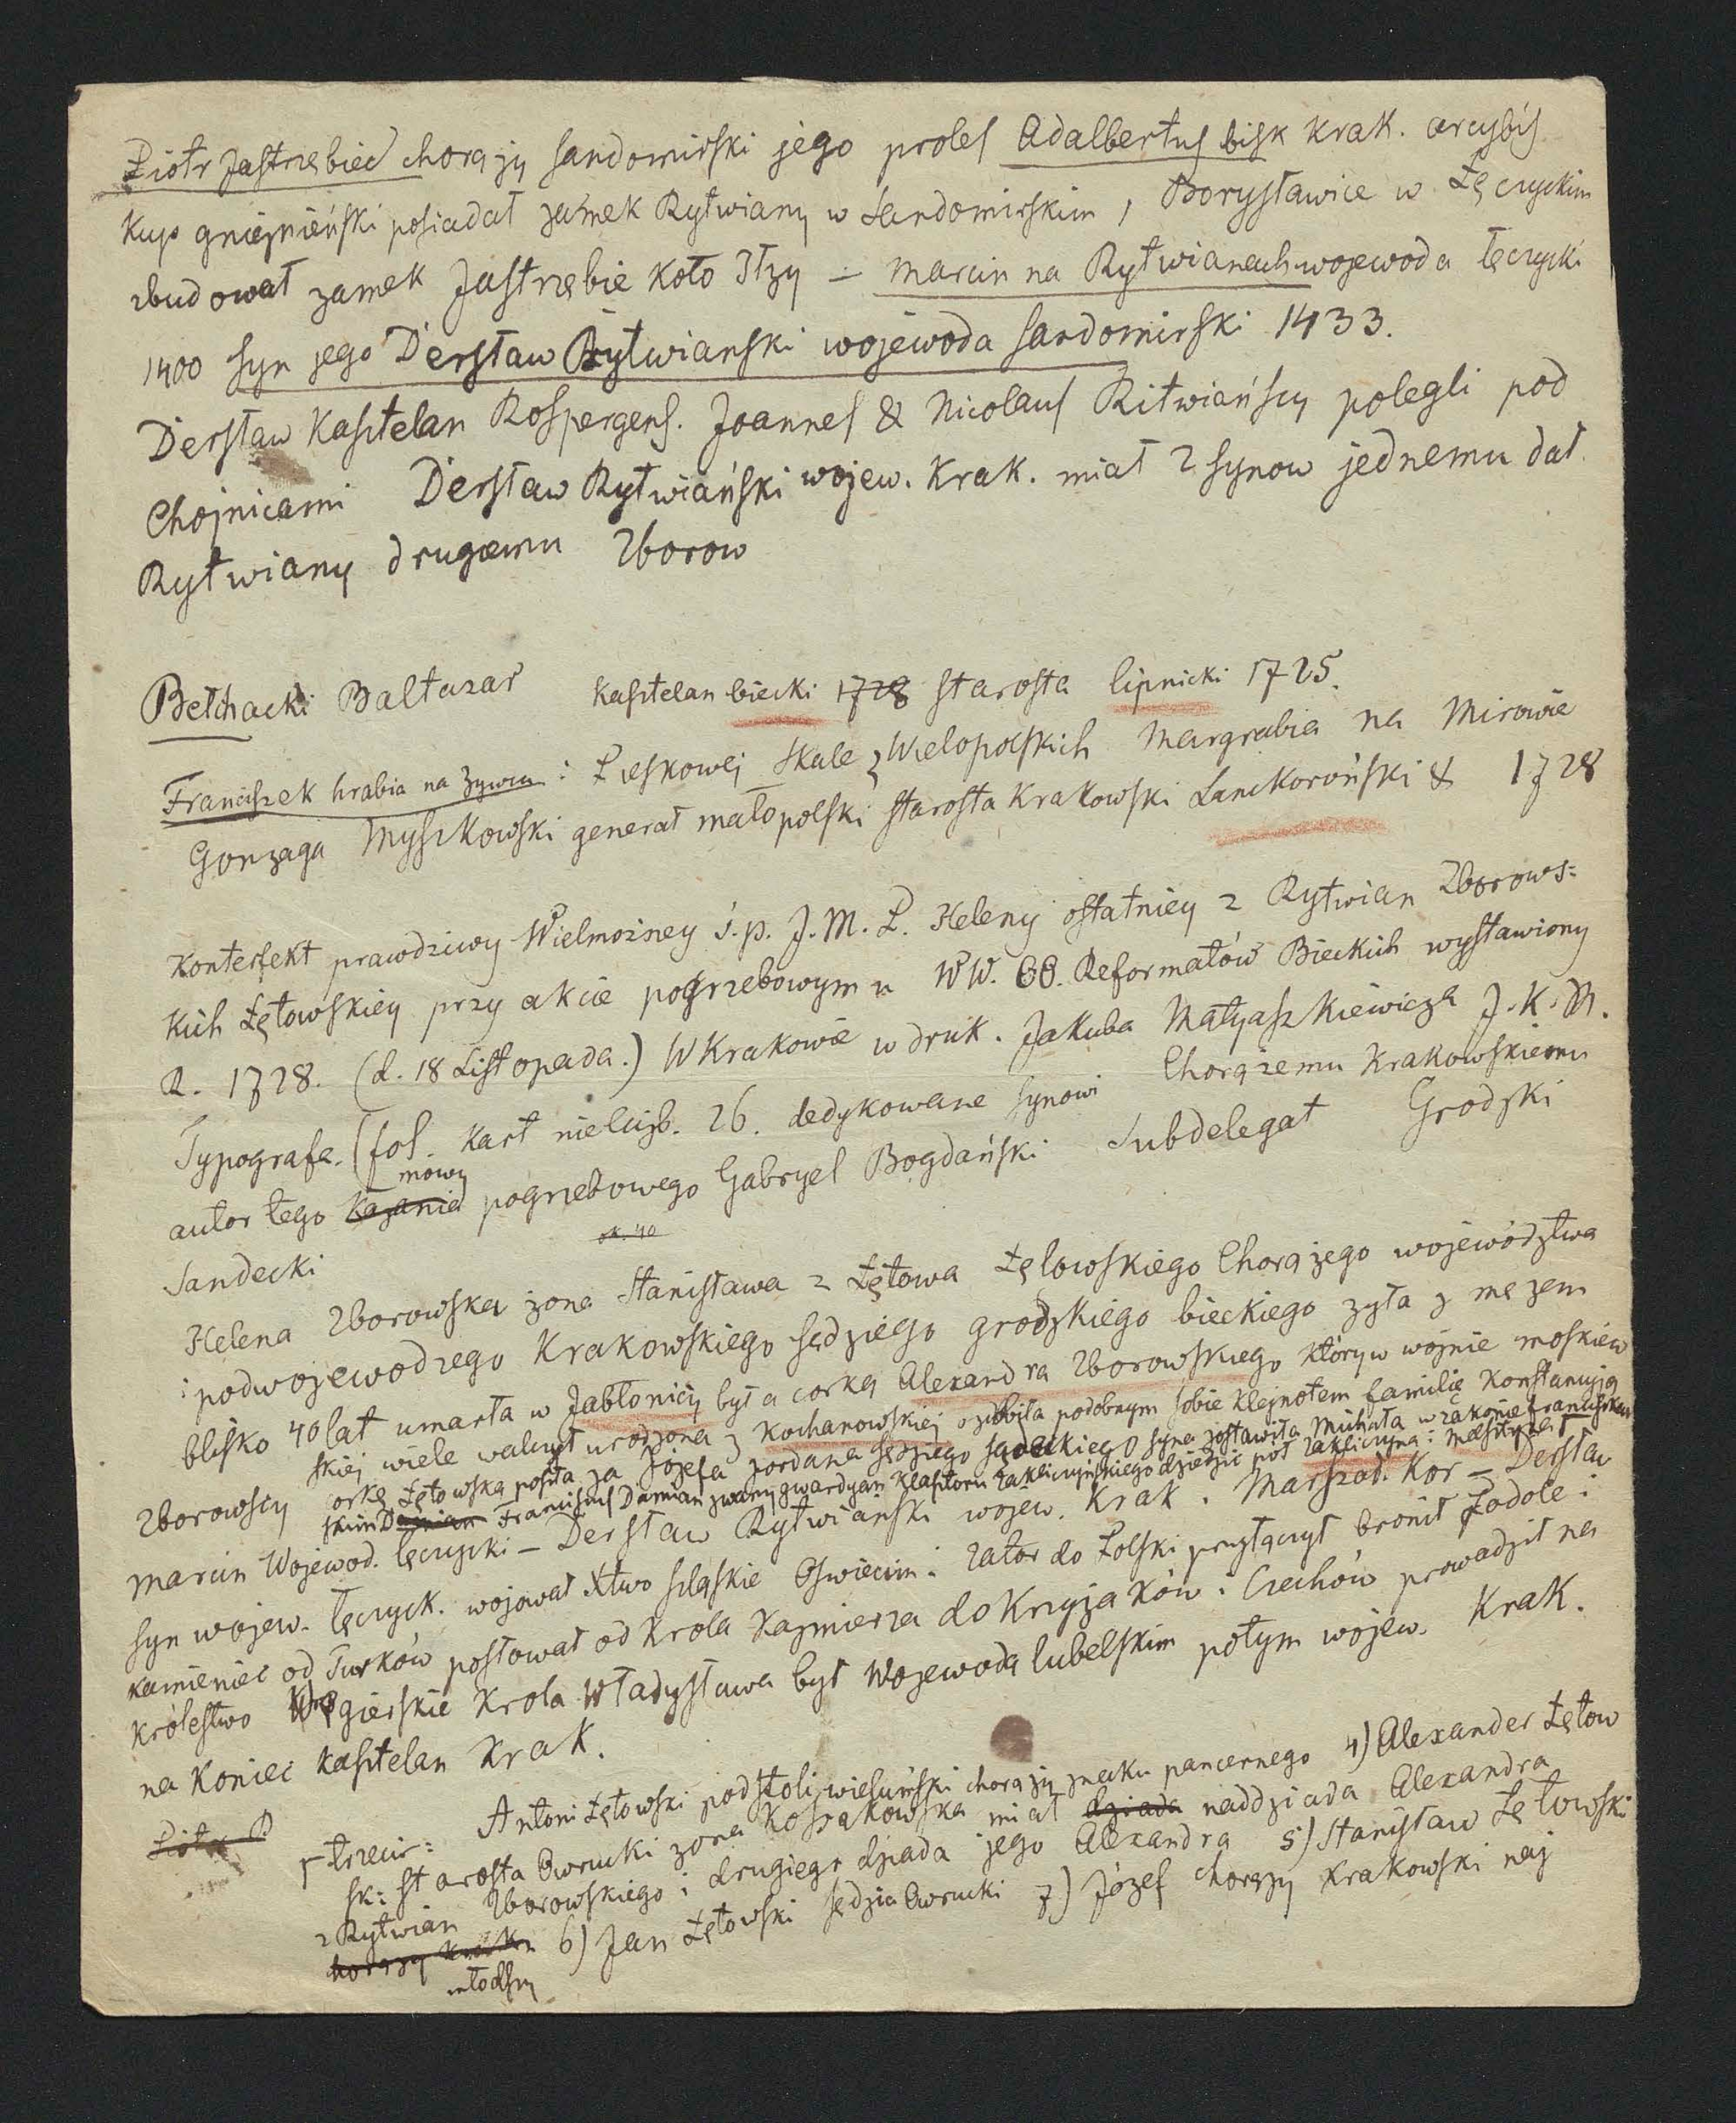 Piotr Jastrzębiec chorąży sandomirski jego proles Adalbertus bisk krak. arcybis
kup gnieźnieński posiadał zamek Rytwiany w Sandomirskim, Borysławice w Łęczyckim
zbudował zamek Jastrzębie koło Iłzy – Marcin na Rytwianach wojewoda łęczycki
1400 syn jego Dersław Rytwianski wojewoda sandomirski 1433.
Dersław Kasztelan Rospergens. Joannes & Nicolaus Ritwiańscy polegli pod
Chojnicami Dersław Rytwiański wojew. Krak. miał 2 synow jednemu dał
Rytwiany drugiemu Zborow
Bełchacki Baltazar Kasztelan biecki 1728 starosta lipnicki 1725.
Franciszek hrabia na Żywcu i Pieskowej Skale z Wielopolskich Margrabia na Mirowie
Gonzaga Myszkowski generał małopolski starosta Krakowski Lanckoroński & 1728
Konterfekt prawdziwy Wielmożney ś. p. J. M. P. Heleny ostatniey z Rytwian Zborows:
kich Łętowskiey przy akcie pogrzebowym u WW. OO. Reformatów Bieckich wystawiony
R. 1728. (d. 18 Listopada.) W Krakowie w druk. Jakuba Matyaszkiewicza J. K. M.
Typografa. (fol. Kart nieliczb. 26. dedykowane synowi Chorążemu Krakowskiemu
autor tego kazania mowy pogrzebowego Gabryel Bogdański Subdelegat Grodzki
Sandecki
Helena Zborowska żona Stanisława z Łętowa Łętowskiego Chorążego województwa
i podwojewodzego Krakowskiego sędziego grodzkiego bieckiego żyła z mężem
blisko 40 lat umarła w Jabłonicy była corką Alexandra Zborowskiego który w wojnie moskiew
skiej wiele walczył urodzona z Kochanowskiej ozdobiła podobnym sobie klejnotem familię Konstancyją
corkę Łętowską poszła za Józefa Jordana sędziego sądeckiego syna zostawiła Michała w zakonie franciszkań
skim Damian Franciscus Damian zwany gwardyan Klasztoru Zakliczyńskiego dziedzic pół Zakliczyna i Melsztyna
Zborowscy
Marcin Wojewod. łęczycki – Dersław Rytwiański wojew. Krak. Marszał. Kor – Dersław
syn wojew. łęczyck. wojował Xtwo szląskie Oswiecim i Zator do Polski przyłączył bronił Podole i
kamieniec od Turków posłował od Krola Kazmierza do Krzyżaków i Czechów prowadził na
królestwo Węgierskie Krola Władysława był Wojewodą lubelskim potym wojew. Krak.
na koniec kasztelan Krak.
Antoni Łętowski podstoli wieluński chorąży znaku pancernego 4) Alexander Łętow
sk: starosta Owrucki żona Kossakowska miał dziada naddziada Alexandra
z Rytwian Zborowskiego i drugiego dziada jego Alexandra 5) Stanisław Łętowski
6) Jan Łętowski sędzia Owrucki 7) Józef chorąży krakowski naj
młodszy